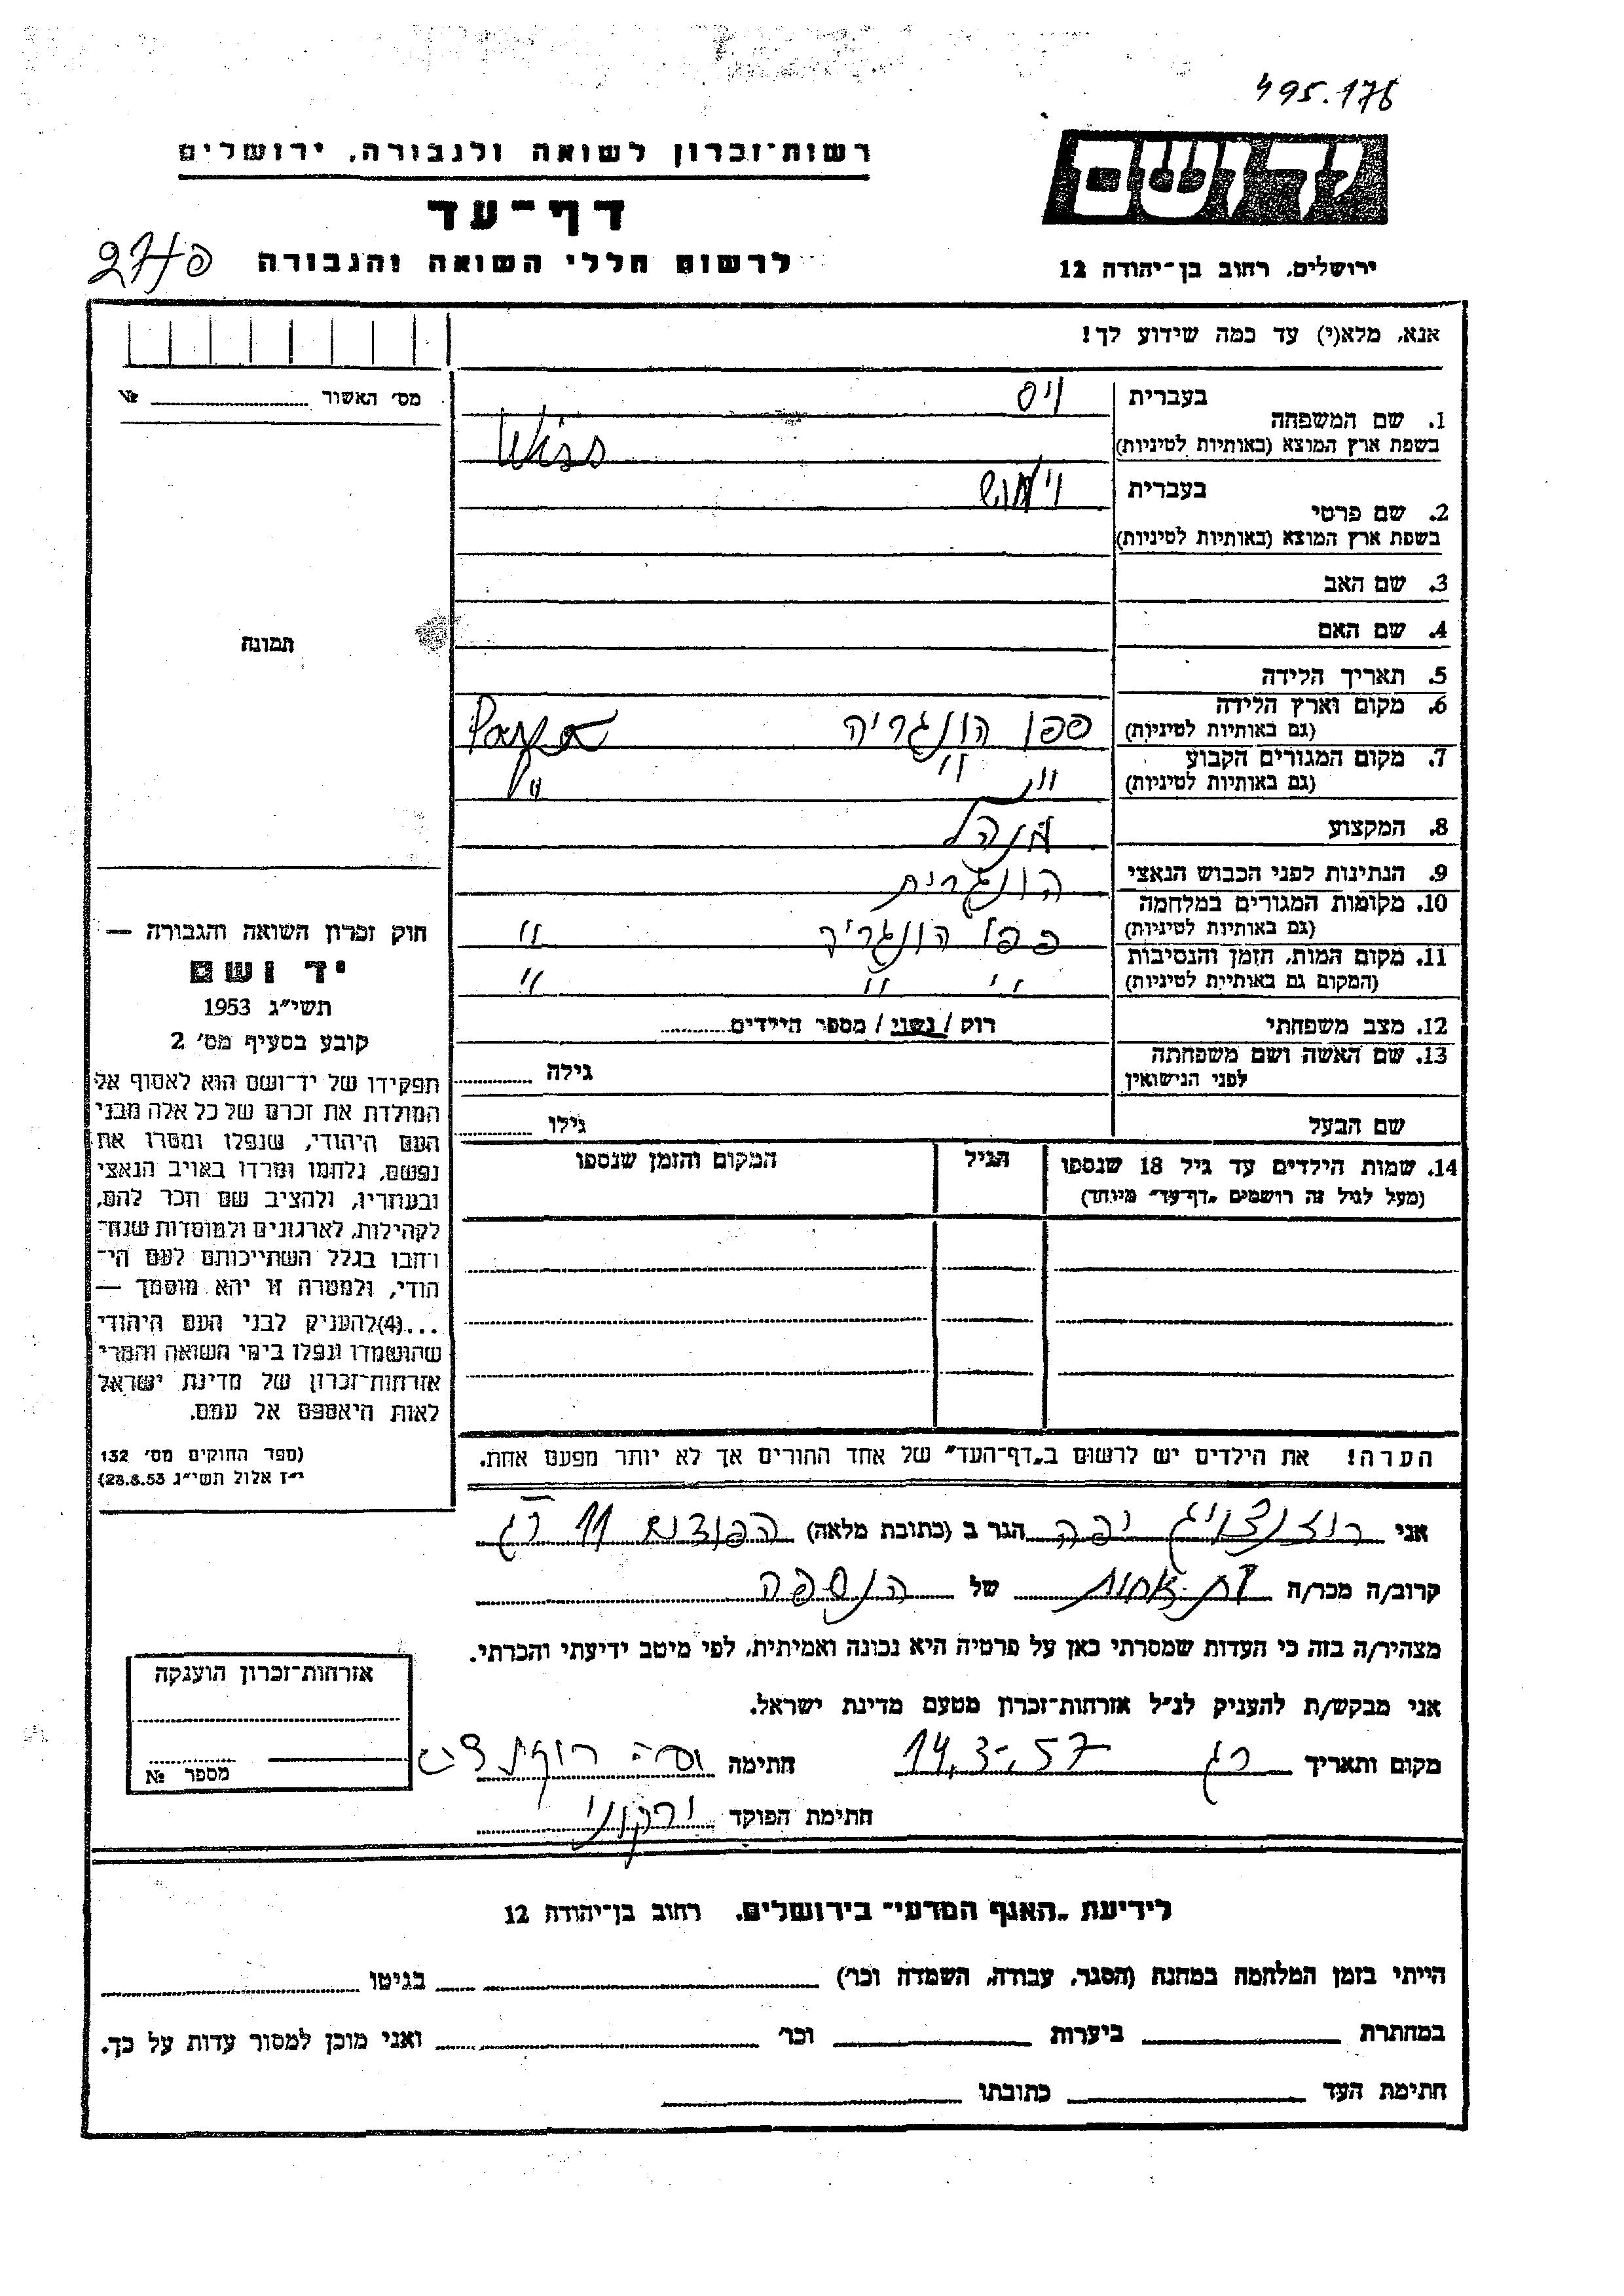 495.178
יד ושם
רשות־זכרון לשואה ולגבורה, ירושלים
דף־עד
לרשום חללי השואה והגבורה
ירושלים, רחוב בן־יהודה 12
אנא, מלא(י) עד כמה שידוע לך!
מס׳ האשור № 
בעברית וייס
1. שם המשפחה
בשפת ארץ המוצא (באותיות לטיניות) Weiss
בעברית
2. שם פרטי
בשפת ארץ המוצא (באותיות לטיניות)
3. שם האב
4. שם האם
תמונה
5. תאריך הלידה
6. מקום וארץ הלידה פפו הונגריה
(גם באותיות לטיניות)
7. מקום המגורים הקבוע " "
(גם באותיות לטיניות) "
8. המקצוע מנהל
9. הנתינות לפני הכבוש הנאצי הונגרית
10. מקומות המגורים במלחמה
(גם באותיות לטיניות) פפו הונגריה "
11. מקום המות, הזמן והנסיבות
(המקום גם באותיות לטיניות) " " "
12. מצב משפחתי רוק / נשוי / מספר הילדים
13. שם האשה ושם משפחתה
לפני הנישואין גילה
שם הבעל גילו
14. שמות הילדים עד גיל 18 שנספו הגיל המקום והזמן שנספו
(מעל לגיל זה רושמים „דף־עד״ מיוחד)
חוק זכרון השואה והגבורה —
יד ושם
תשי״ג 1953
קובע בסעיף מס׳ 2
תפקידו של יד־ושם הוא לאסוף אל
המולדת את זכרם של כל אלה מבני
העם היהודי, שנפלו ומסרו את
נפשם, נלחמו ומרדו באויב הנאצי
ובעוזריו, ולהציב שם וזכר להם,
לקהילות, לארגונים ולמוסדות שנח־
רבו בגלל השתייכותם לעם הי־
הודי, ולמטרה זו יהא מוסמך —
...(4)להעניק לבני העם היהודי
שהושמדו ונפלו בימי השואה והמרי
אזרחות־זכרון של מדינת ישראל
לאות היאספם אל עמם.
(ספר החוקים מס׳ 132
י״ז אלול תשי״ג 28.8.53)
הערה! את הילדים יש לרשום ב„דף־העד״ של אחד ההורים אך לא יותר מפעם אחת.
אני רוזנצויג יפה הגר ב (כתובת מלאה) 11 רג
קרוב/ה מכר/ה בת אחות של הנספה
מצהיר/ה בזה כי העדות שמסרתי כאן על פרטיה היא נכונה ואמיתית, לפי מיטב ידיעתי והכרתי.
אני מבקש/ת להעניק לנ״ל אזרחות־זכרון מטעם מדינת ישראל.
מקום ותאריך רג 14.3.57 חתימה
חתימת הפוקד ירקוני
אזרחות־זכרון הוענקה
מספר №
לידיעת „האגף המדעי״ בירושלים, רחוב בן־יהודה 12
הייתי בזמן המלחמה במחנה (הסגר, עבודה, השמדה וכו׳) בגיטו
במחתרת ביערות וכו׳ ואני מוכן למסור עדות על כך.
חתימת העד כתובתו